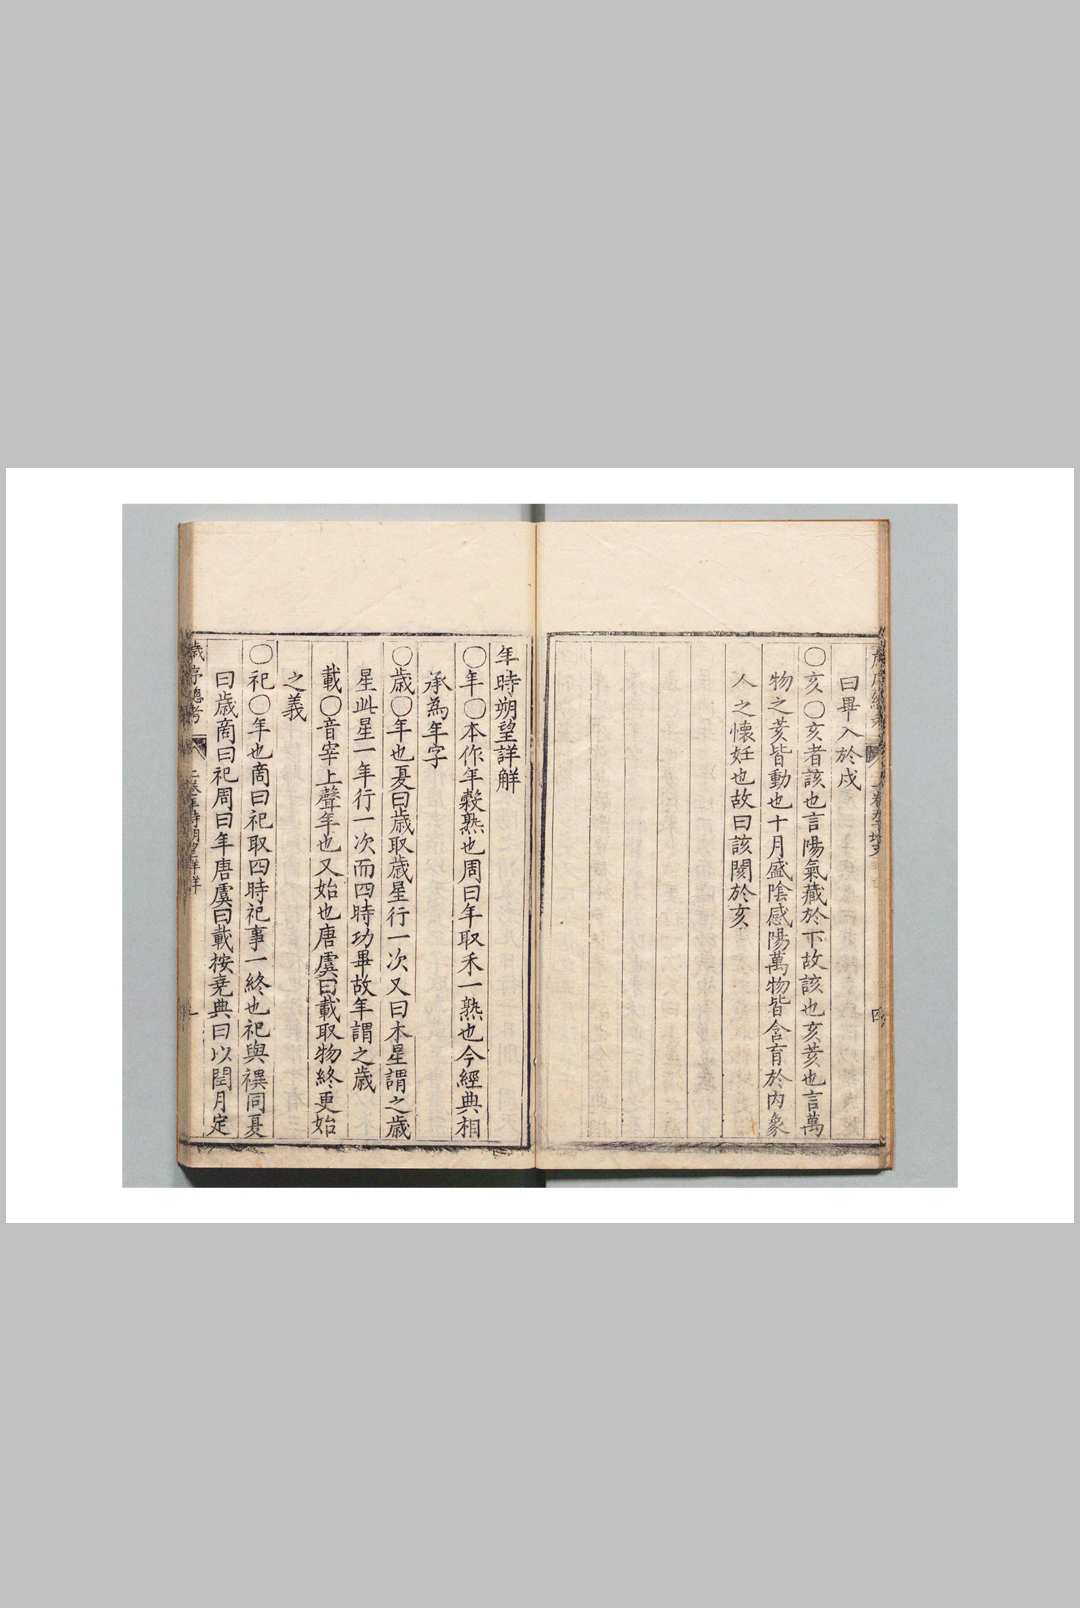 曰畢入於戌
〇亥〇亥者該也言陽氣藏於下故該也亥荄也言萬
物之荄皆動也十月盛陰感陽萬物皆含育於內象
人之懷妊也故曰該閡於亥
四
年時朔望詳解
〇年〇本作年穀熟也周曰年取禾一熟也今經典相
承為年字
〇歲〇年也夏曰歲取歲星行一次又曰木星謂之歲
星此星一年行一次而四時功畢故年謂之歲
載〇音宰上聲年也又始也唐虞曰載取物終更始
之義
〇祀〇年也商曰祀取四時祀事一終也祀與禩同夏
曰歲商曰祀周曰年唐虞曰載按堯典曰以閏月定
歲序總考